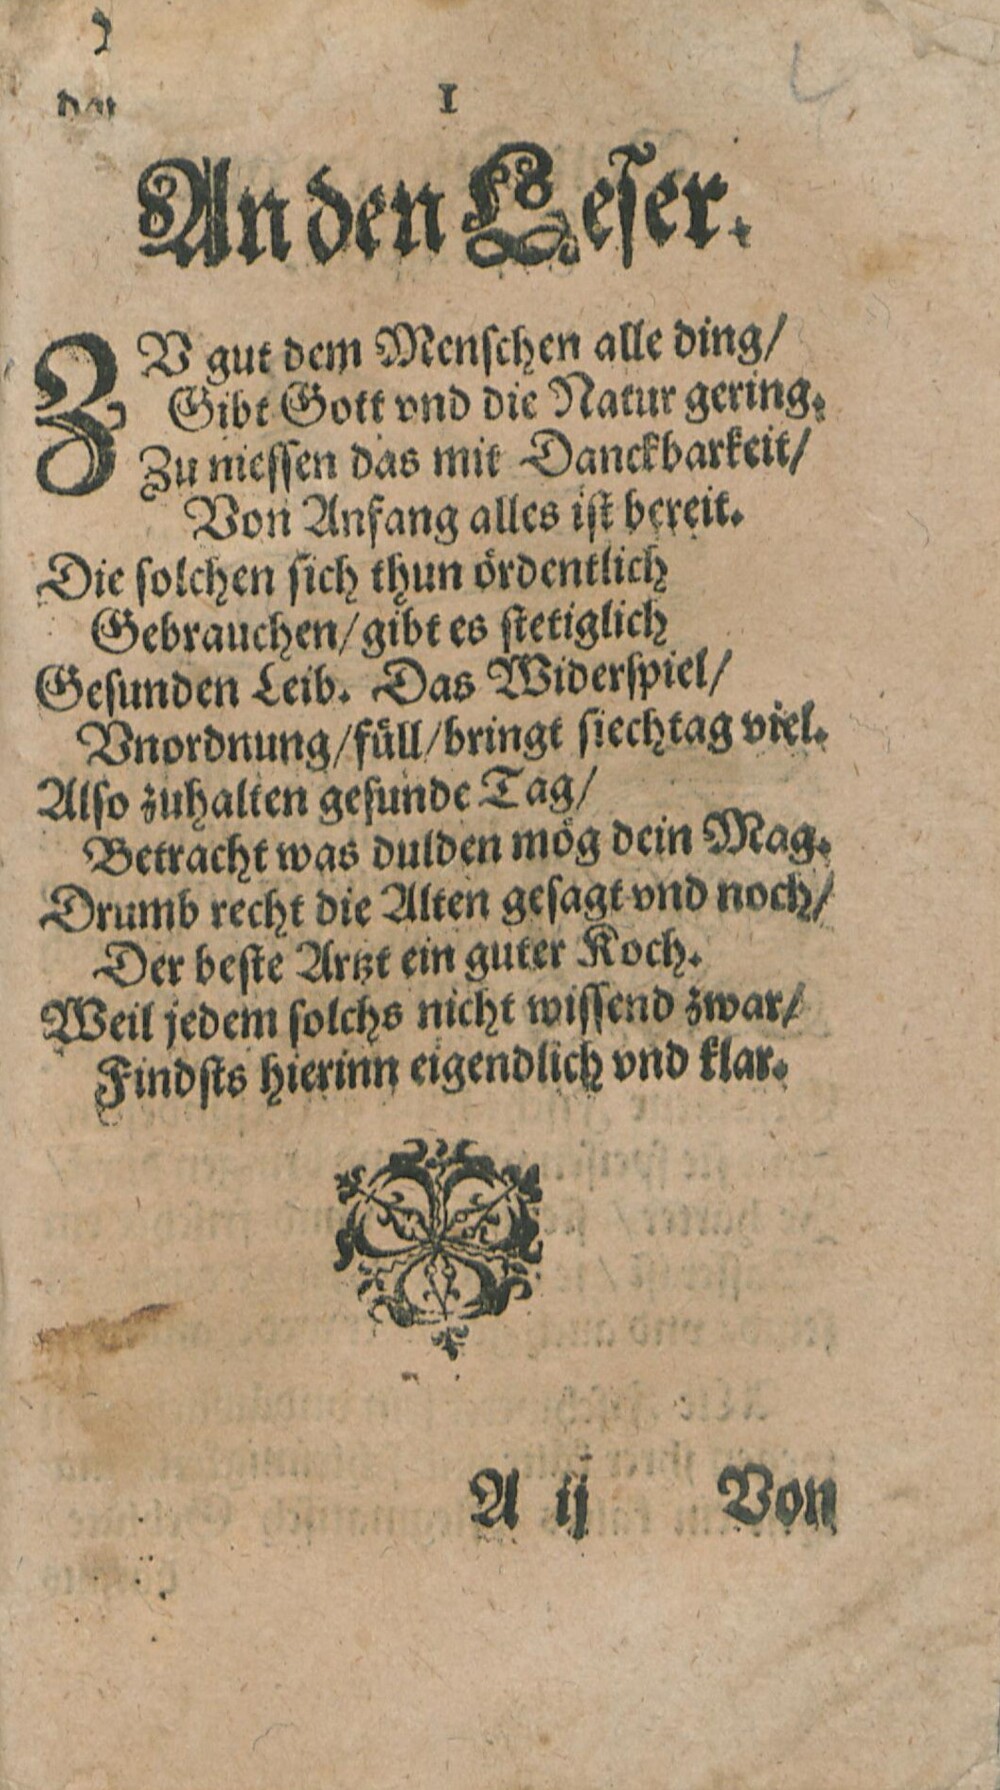 1
An den Leser.
ZV gut dem Menschen alle ding/
Gibt Gott vnd die Natur gering.
Zu niessen das mit Danckbarkeit/
Von Anfang alles ist bereit.
Die solchen sich thun ördentlich
Gebrauchen/gibt es stetiglich
Gesunden Leib. Das Widerspiel/
Vnordnung/füll/bringt siechtag viel.
Also zuhalten gesunde Tag/
Betracht was dulden mög dein Mag.
Drumb recht die Alten gesagt vnd noch/
Der beste Artzt ein guter Koch.
Weil jedem solchs nicht wissend zwar/
Findsts hierinn eigendlich vnd klar.
A ij Von